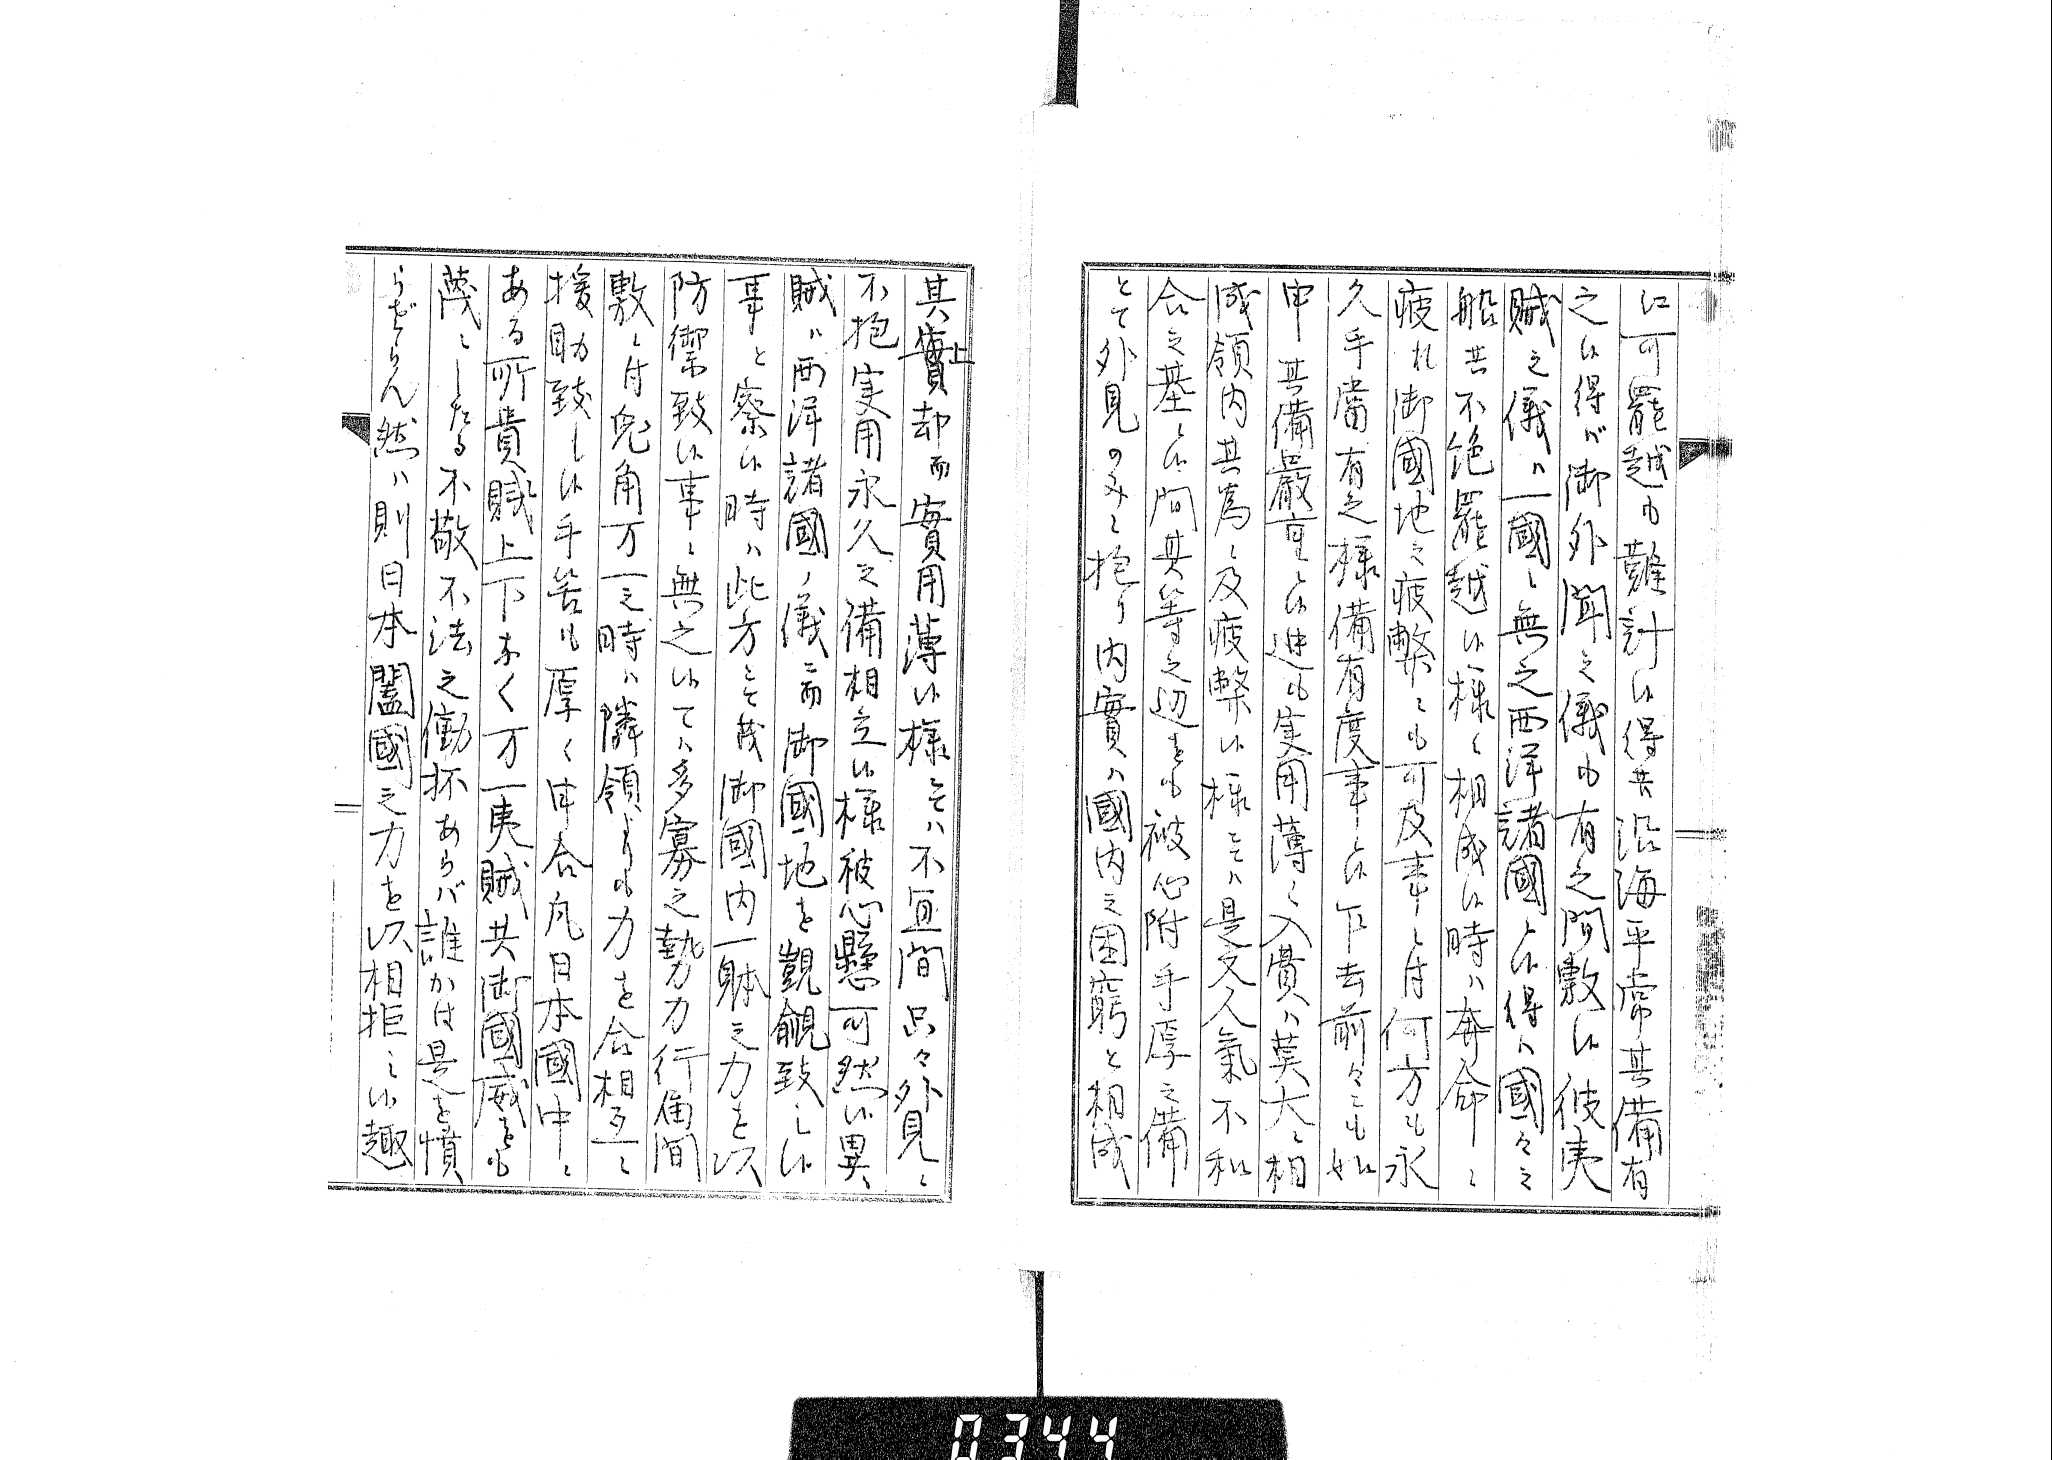 江可罷越も難計候得共沿海平常其備有
之候得バ御外聞之儀も有之間敷候彼夷
賊之儀ハ一國ニ無之西洋諸國と候得ハ國々之
船共不絶罷越候様ニ相成候時ハ奔命ニ
疲れ御國地之疲弊ニも可及事ニ付何方も永
久手當有之様備有度事ニ候下去前々ニも如
申其備嚴重ニ候迚も実用薄ニ入費ハ莫大ニ相
成領内其為ニ及疲弊候様ニてハ是又人氣不和
合之基ニ候間其等之辺をも被心附手厚之備
とて外見のみニ抱り内實ハ國内之困窮と相成
其實却而實用薄候様ニてハ不宜間只々外見ニ
不抱実用永久之備相立候様被心懸可然候異
賊ハ西洋諸國ノ儀ニ而御國地を覬覦致し候
事と察候時ハ此方ニて茂御國内一躰之力を以
防禦致候事ニ無之候てハ多寡之勢力行届間
敷ニ付兎角万一之時ハ隣領よりも力を合相互ニ
援助致し候手筈も厚く申合凡日本國中ニ
ある所貴賤上下なく万一夷賊共御國威をも
蔑ニしたる不敬不法之働抔あらバ誰かは是を憤
らざらん然ハ則日本闔國之力を以相拒ミ候趣
上
0344